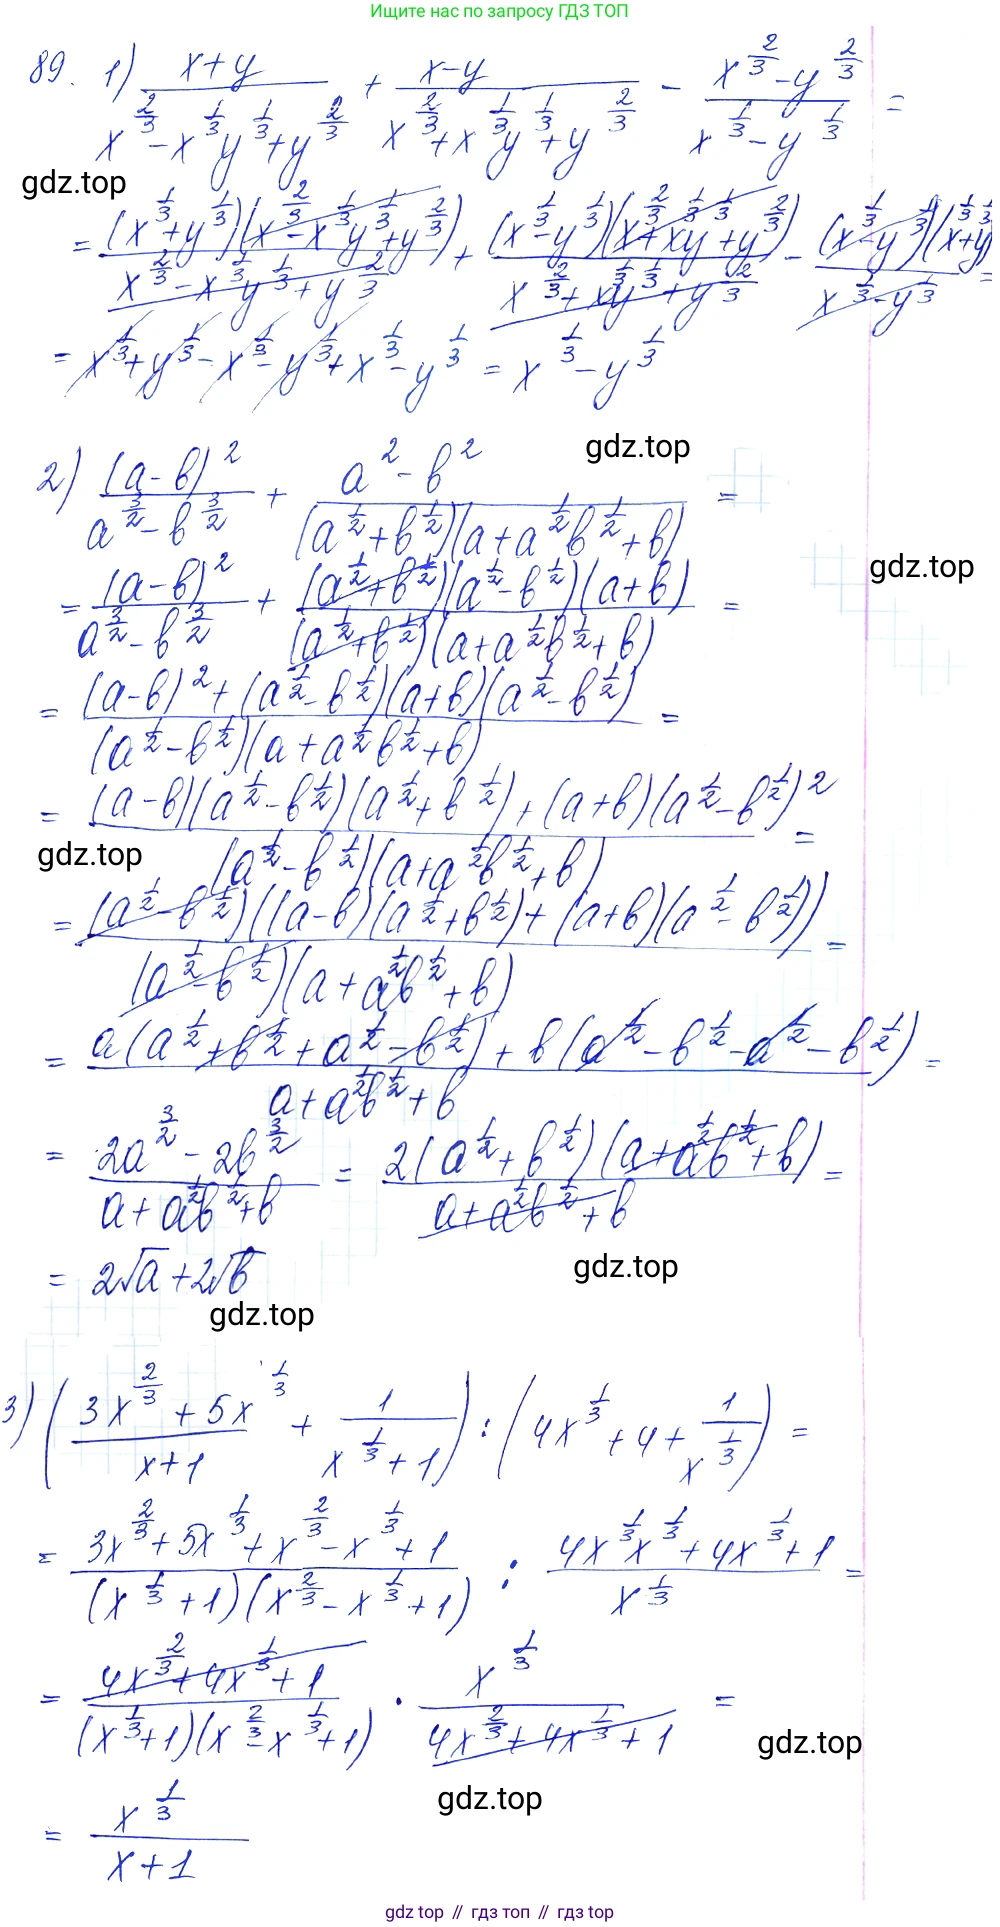 Ищите нас по запросу ГДЗ ТОП
89. 1) (x+y)/(x^(2/3) - x^(1/3)y^(1/3) + y^(2/3)) + (x-y)/(x^(2/3) + x^(1/3)y^(1/3) + y^(2/3)) - (x^(2/3) - y^(2/3))/(x^(1/3) - y^(1/3)) =
gdz.top
= (x^(1/3) + y^(1/3))(x^(2/3) - x^(1/3)y^(1/3) + y^(2/3))/(x^(2/3) - x^(1/3)y^(1/3) + y^(2/3)) + (x^(1/3) - y^(1/3))(x^(2/3) + x^(1/3)y^(1/3) + y^(2/3))/(x^(2/3) + x^(1/3)y^(1/3) + y^(2/3)) - (x^(1/3) - y^(1/3))(x^(1/3) + y^(1/3))/(x^(1/3) - y^(1/3)) =
= x^(1/3) + y^(1/3) - x^(1/3) - y^(1/3) + x^(1/3) - y^(1/3) = x^(1/3) - y^(1/3)
gdz.top
2) (a-b)^2/(a^(3/2) - b^(3/2)) + (a^2 - b^2)/((a^(1/2) + b^(1/2))(a + a^(1/2)b^(1/2) + b)) =
gdz.top
= (a-b)^2/(a^(3/2) - b^(3/2)) + (a^(1/2) + b^(1/2))(a^(1/2) - b^(1/2))(a+b)/((a^(1/2) + b^(1/2))(a + a^(1/2)b^(1/2) + b)) =
= ((a-b)^2 + (a^(1/2) - b^(1/2))(a+b)(a^(1/2) - b^(1/2)))/((a^(1/2) - b^(1/2))(a + a^(1/2)b^(1/2) + b)) =
= ((a-b)(a^(1/2) - b^(1/2))(a^(1/2) + b^(1/2)) + (a+b)(a^(1/2) - b^(1/2))^2)/((a^(1/2) - b^(1/2))(a + a^(1/2)b^(1/2) + b)) =
gdz.top
= (a^(1/2) - b^(1/2))((a-b)(a^(1/2) + b^(1/2)) + (a+b)(a^(1/2) - b^(1/2)))/((a^(1/2) - b^(1/2))(a + a^(1/2)b^(1/2) + b)) =
= (a(a^(1/2) + b^(1/2) + a^(1/2) - b^(1/2)) + b(a^(1/2) - b^(1/2) - a^(1/2) - b^(1/2)))/(a + a^(1/2)b^(1/2) + b) =
= (2a^(3/2) - 2b^(3/2))/(a + a^(1/2)b^(1/2) + b) = 2(a^(1/2) + b^(1/2))(a + a^(1/2)b^(1/2) + b)/(a + a^(1/2)b^(1/2) + b) =
= 2√a + 2√b
gdz.top
gdz.top
3) ((3x^(2/3) + 5x^(1/3))/(x+1) + 1/(x^(1/3) + 1)) : (4x^(1/3) + 4 + 1/x^(1/3)) =
= (3x^(2/3) + 5x^(1/3) + x^(2/3) - x^(1/3) + 1)/((x^(1/3) + 1)(x^(2/3) - x^(1/3) + 1)) : (4x^(1/3)x^(1/3) + 4x^(1/3) + 1)/x^(1/3) =
= (4x^(2/3) + 4x^(1/3) + 1)/((x^(1/3) + 1)(x^(2/3) - x^(1/3) + 1)) · x^(1/3)/(4x^(2/3) + 4x^(1/3) + 1) =
gdz.top
gdz.top
= x^(1/3)/(x+1)
gdz.top // гдз топ // gdz.top